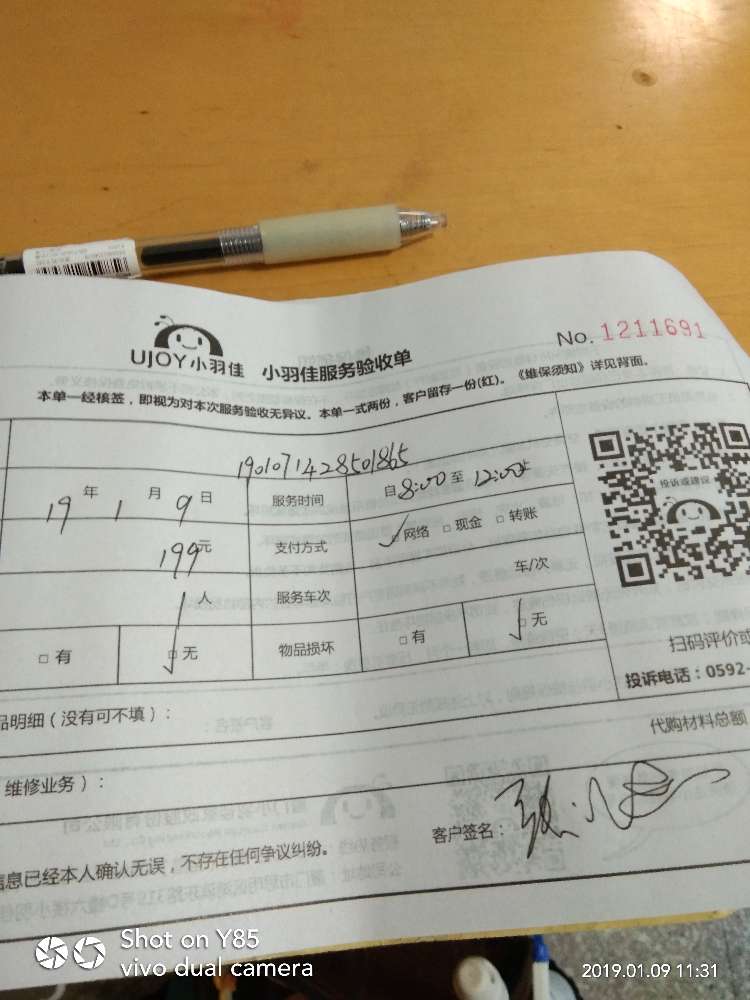 UJOY小羽佳 小羽佳服务验收单
No. 1211691
本单一经核签，即视为对本次服务验收无异议。本单一式两份，客户留存一份(红)。《维保须知》详见背面。
1901071428501865
19年1月9日 服务时间 自8:00至12:00止
199元 支付方式 网络 现金 转账
1人 服务车次 车/次
有 无 物品损坏 有 无
投诉或建议
扫码评价或
投诉电话：0592-
品明细（没有可不填）：
代购材料总额
维修业务）：
客户签名：
信息已经本人确认无误，不存在任何争议纠纷。
Shot on Y85
vivo dual camera
2019.01.09 11:31